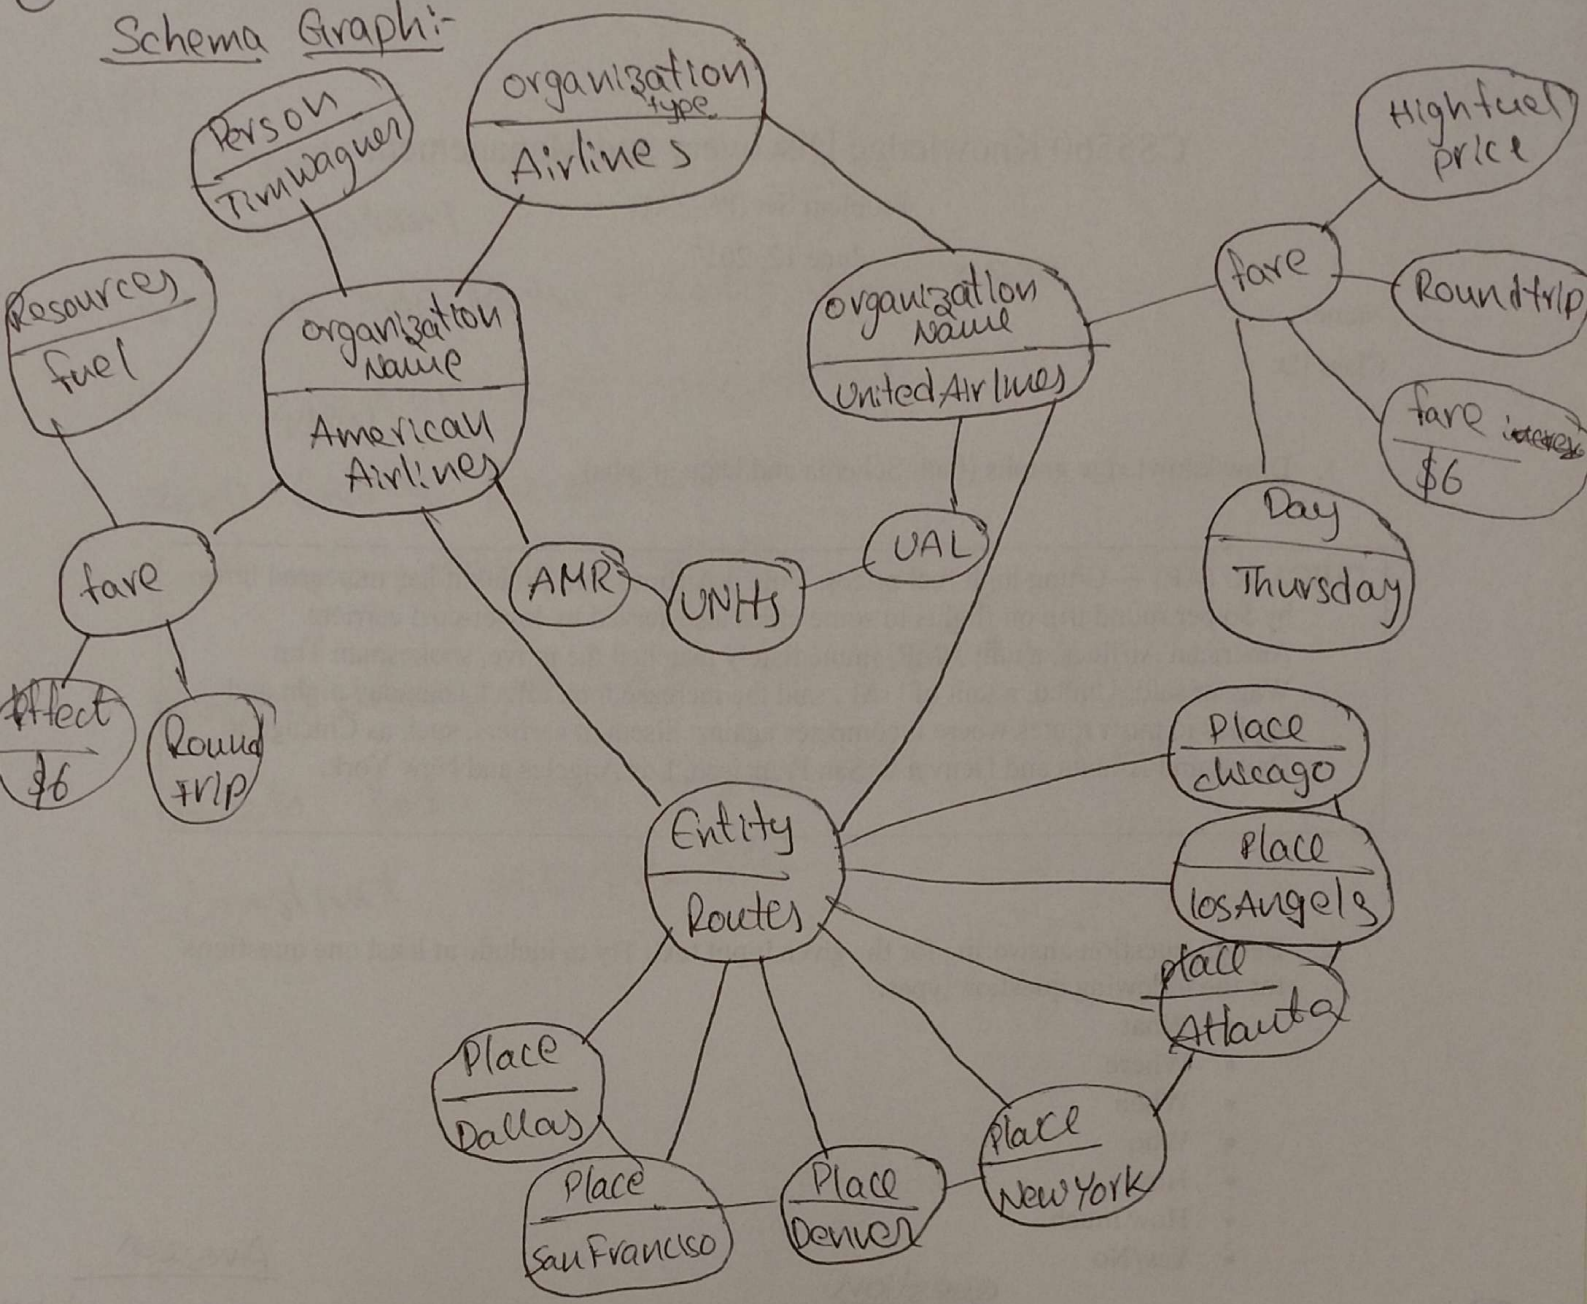 Schema Graph:-
Person
Timwagner
organization
type
Airlines
High fuel
price
Resources
fuel
organization
Name
American
Airlines
organization
Name
United Airlines
fare
Roundtrip
fare
$6
Day
Thursday
fare
AMR
UNHS
UAL
Effect
$6
Round
trip
Entity
Routes
Place
chicago
Place
losAngels
place
Atlanta
Place
Dallas
Place
San Franciso
Place
Denver
place
New York